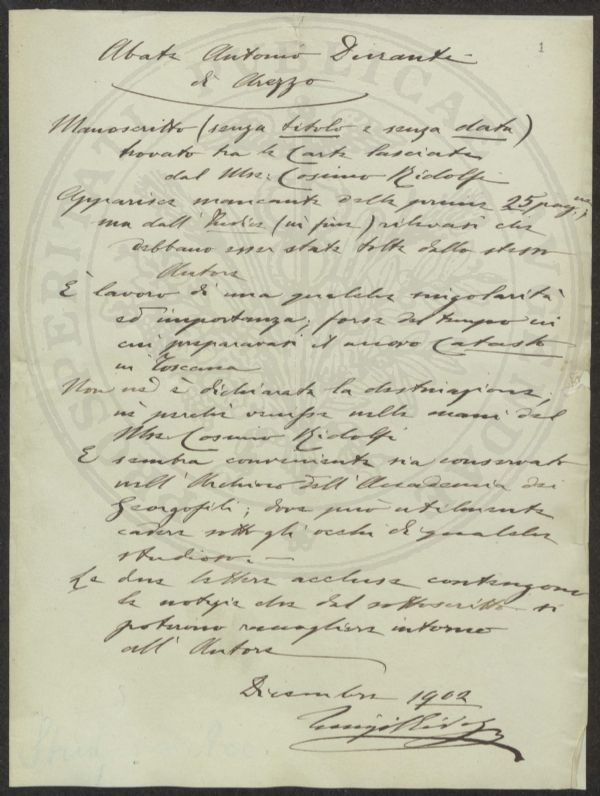 1
Abate Antonio Durante
di Arezzo
Manoscritto (senza titolo e senza data)
trovato tra le Carte lasciate
dal Mse: Cosimo Ridolfi
Apparisce mancante delle prime 25 pagine,
ma dall'Indice (in fine) rilevasi che
debbano esser state tolte dallo stesso
Autore
È lavoro di una qualche singolarità
ed importanza, forse del tempo in
cui preparavasi il nuovo Catasto
in Toscana
Non ne è dichiarata la destinazione,
nè perchè venisse nelle mani del
Mse Cosimo Ridolfi
E sembra conveniente sia conservato
nell'Archivio dell'Accademia dei
Georgofili; dove può utilmente
cadere sotto gli occhi di qualche
studioso.—
Le due lettere accluse contengono
le notizie che dal sottoscritto si
poterono raccogliere intorno
all'Autore
Dicembre 1902
Luigi Ridolfi